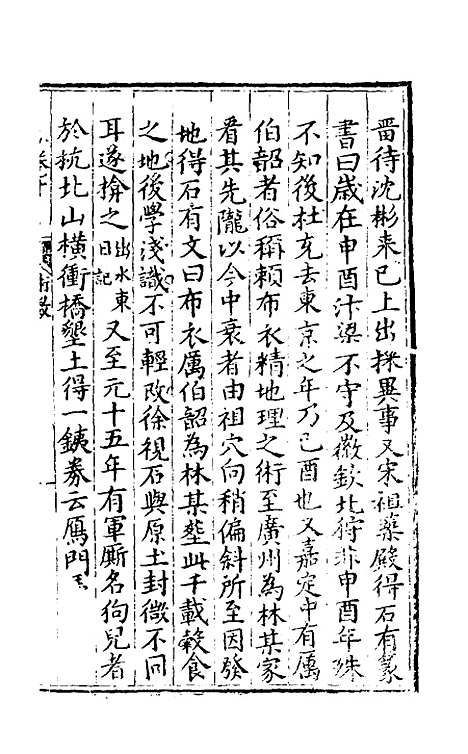 畱待沈彬来已上出採異事又宋祖藥殿得石有篆
書曰歳在申酉汴梁不守及徽欽北狩非申酉年殊
不知後杜充去東京之年乃己酉也又嘉定中有厲
伯韶者俗稱頼布衣精地理之術至廣州為林某家
看其先隴以今中衰者由祖穴向稍偏斜所至因發
地得石有文曰布衣厲伯韶為林某塟此千載榖食
之地後學淺識不可輕改徐視石與原土封微不同
耳遂揜之出水東日記又至元十五年有軍厮名狗兒者
於杭北山橫衝橋墾土得一鐵券云鴈門